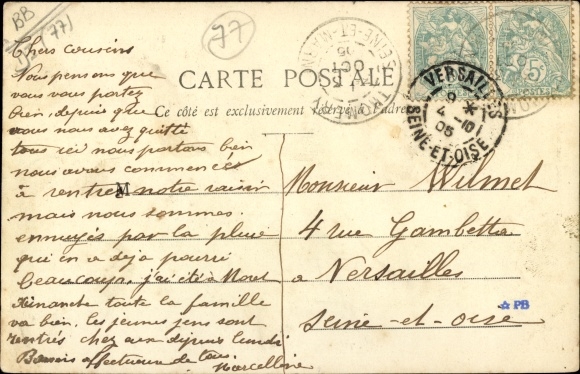 BB
77)
77
CARTE POSTALE
Ce côté est exclusivement réservé à l'adresse
SEINE-ET-MARNE
OCT
05
5c
VERSAILLES
9 *
4 -10
05
SEINE-ET-OISE
Chers cousins
Nous pensons que
vous vous portez
bien, depuis que
vous nous avez quitté
tous ici nous portons bien
nous avons commencés
à rentrer notre raisin
mais nous sommes
ennuyés par la pluie
qui en a déjà pourri
beaucoup, j'ai été à Moret
Dimanche toute la famille
va bien, les jeunes jens sont
rentrés chez eux depuis lundi
Baisers affectueux de tous
Marcelline
M
Monsieur Wilmet
4 rue Gambetta
à Versailles
Seine-et-oise
PB